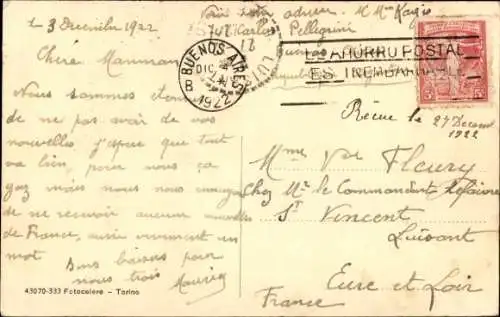 3 Decembre 1922
Chère Maman
Nous sommes
de ne pas avoir de vos
nouvelles, j'espère que tout
va bien, pour nous ça
gaz mais nous nous
de ne recevoir aucune nouvelles
de France, aussi vivement un
mot
Bons baisers pour
nous trois
Maurice
43070-333 Fotocelere - Torino
Carlos Pellegrini
18
BUENOS AIRES
DIC 4
1922
B
EL AHORRO POSTAL
ES INEMBARGABLE
5
Reçue le 27 Decemb
1922
Mme Vve Fleury
Chez Mr le Commandant
St Vincent
Luisant
Eure et Loir
France